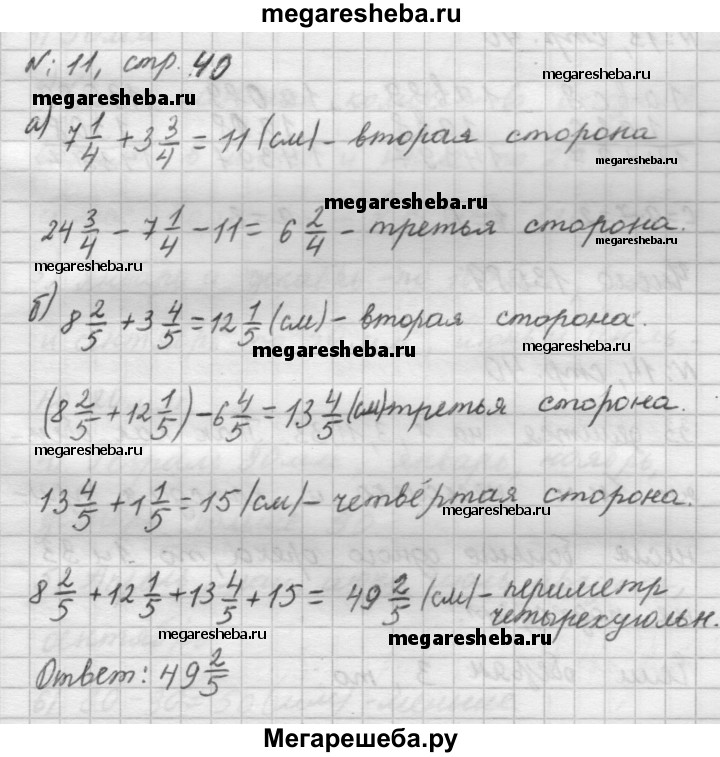 megaresheba.ru
№ 11, стр. 40
megaresheba.ru
megaresheba.ru
а) 7 1/4 + 3 3/4 = 11 (см) – вторая сторона
megaresheba.ru
megaresheba.ru
24 3/4 – 7 1/4 – 11 = 6 2/4 – третья сторона.
megaresheba.ru
megaresheba.ru
б) 8 2/5 + 3 4/5 = 12 1/5 (см) – вторая сторона.
megaresheba.ru
megaresheba.ru
(8 2/5 + 12 1/5) – 6 4/5 = 13 4/5 (см) третья сторона.
megaresheba.ru
13 4/5 + 1 1/5 = 15 (см) – четвёртая сторона.
megaresheba.ru
8 2/5 + 12 1/5 + 13 4/5 + 15 = 49 2/5 (см) – периметр
четырехугольн.
megaresheba.ru
megaresheba.ru
Ответ: 49 2/5
Мегарешеба.ру